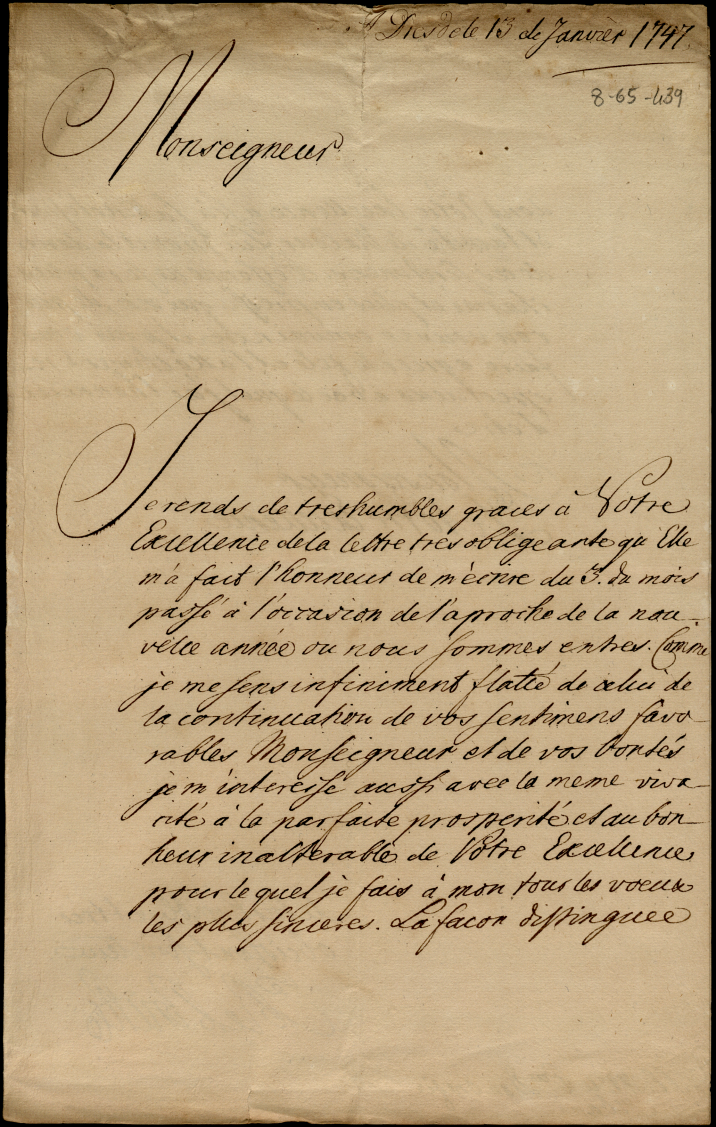 à Dresde le 13 de Janvier 1747.
8-65-439
Monseigneur
Je rends de treshumbles graces à Votre
Excellence de la lettre tres obligeante qu'Elle
m'a fait l'honneur de m'ecrire du 3. du mois
passé à l'occasion de l'aproche de la nou-
velle année ou nous sommes entrés. Comme
je me sens infiniment flatté de celui de
la continuation de vos sentimens favo-
rables Monseigneur et de vos bontés
je m'interesse aussi avec la meme viva-
cité à la parfaite prosperité et au bon-
heur inalterable de Votre Excellence
pour le quel je fais à mon tour les voeux
les plus sinceres. La facon distinguée